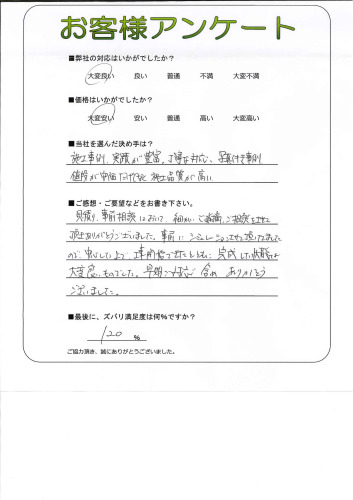 お客様アンケート
■弊社の対応はいかがでしたか?
大変良い 良い 普通 不満 大変不満
■価格はいかがでしたか?
大変安い 安い 普通 高い 大変高い
■当社を選んだ決め手は?
施工事例、実績が豊富。丁寧な対応、写真付き事例
値段が安価だけでなく施工品質が高い
■ご感想・ご要望などをお書き下さい。
見積り、事前相談において、細かいご相談をさせて
頂きありがとうございました。事前にシミュレーションさせて頂いてました
ので、安心した上で、工事依頼できたとともに、完成した状態は
大変良いものでした。早期の対応も含め ありがとう
ございました。
■最後に、ズバリ満足度は何%ですか?
120 %
ご協力頂き、誠にありがとうございました。